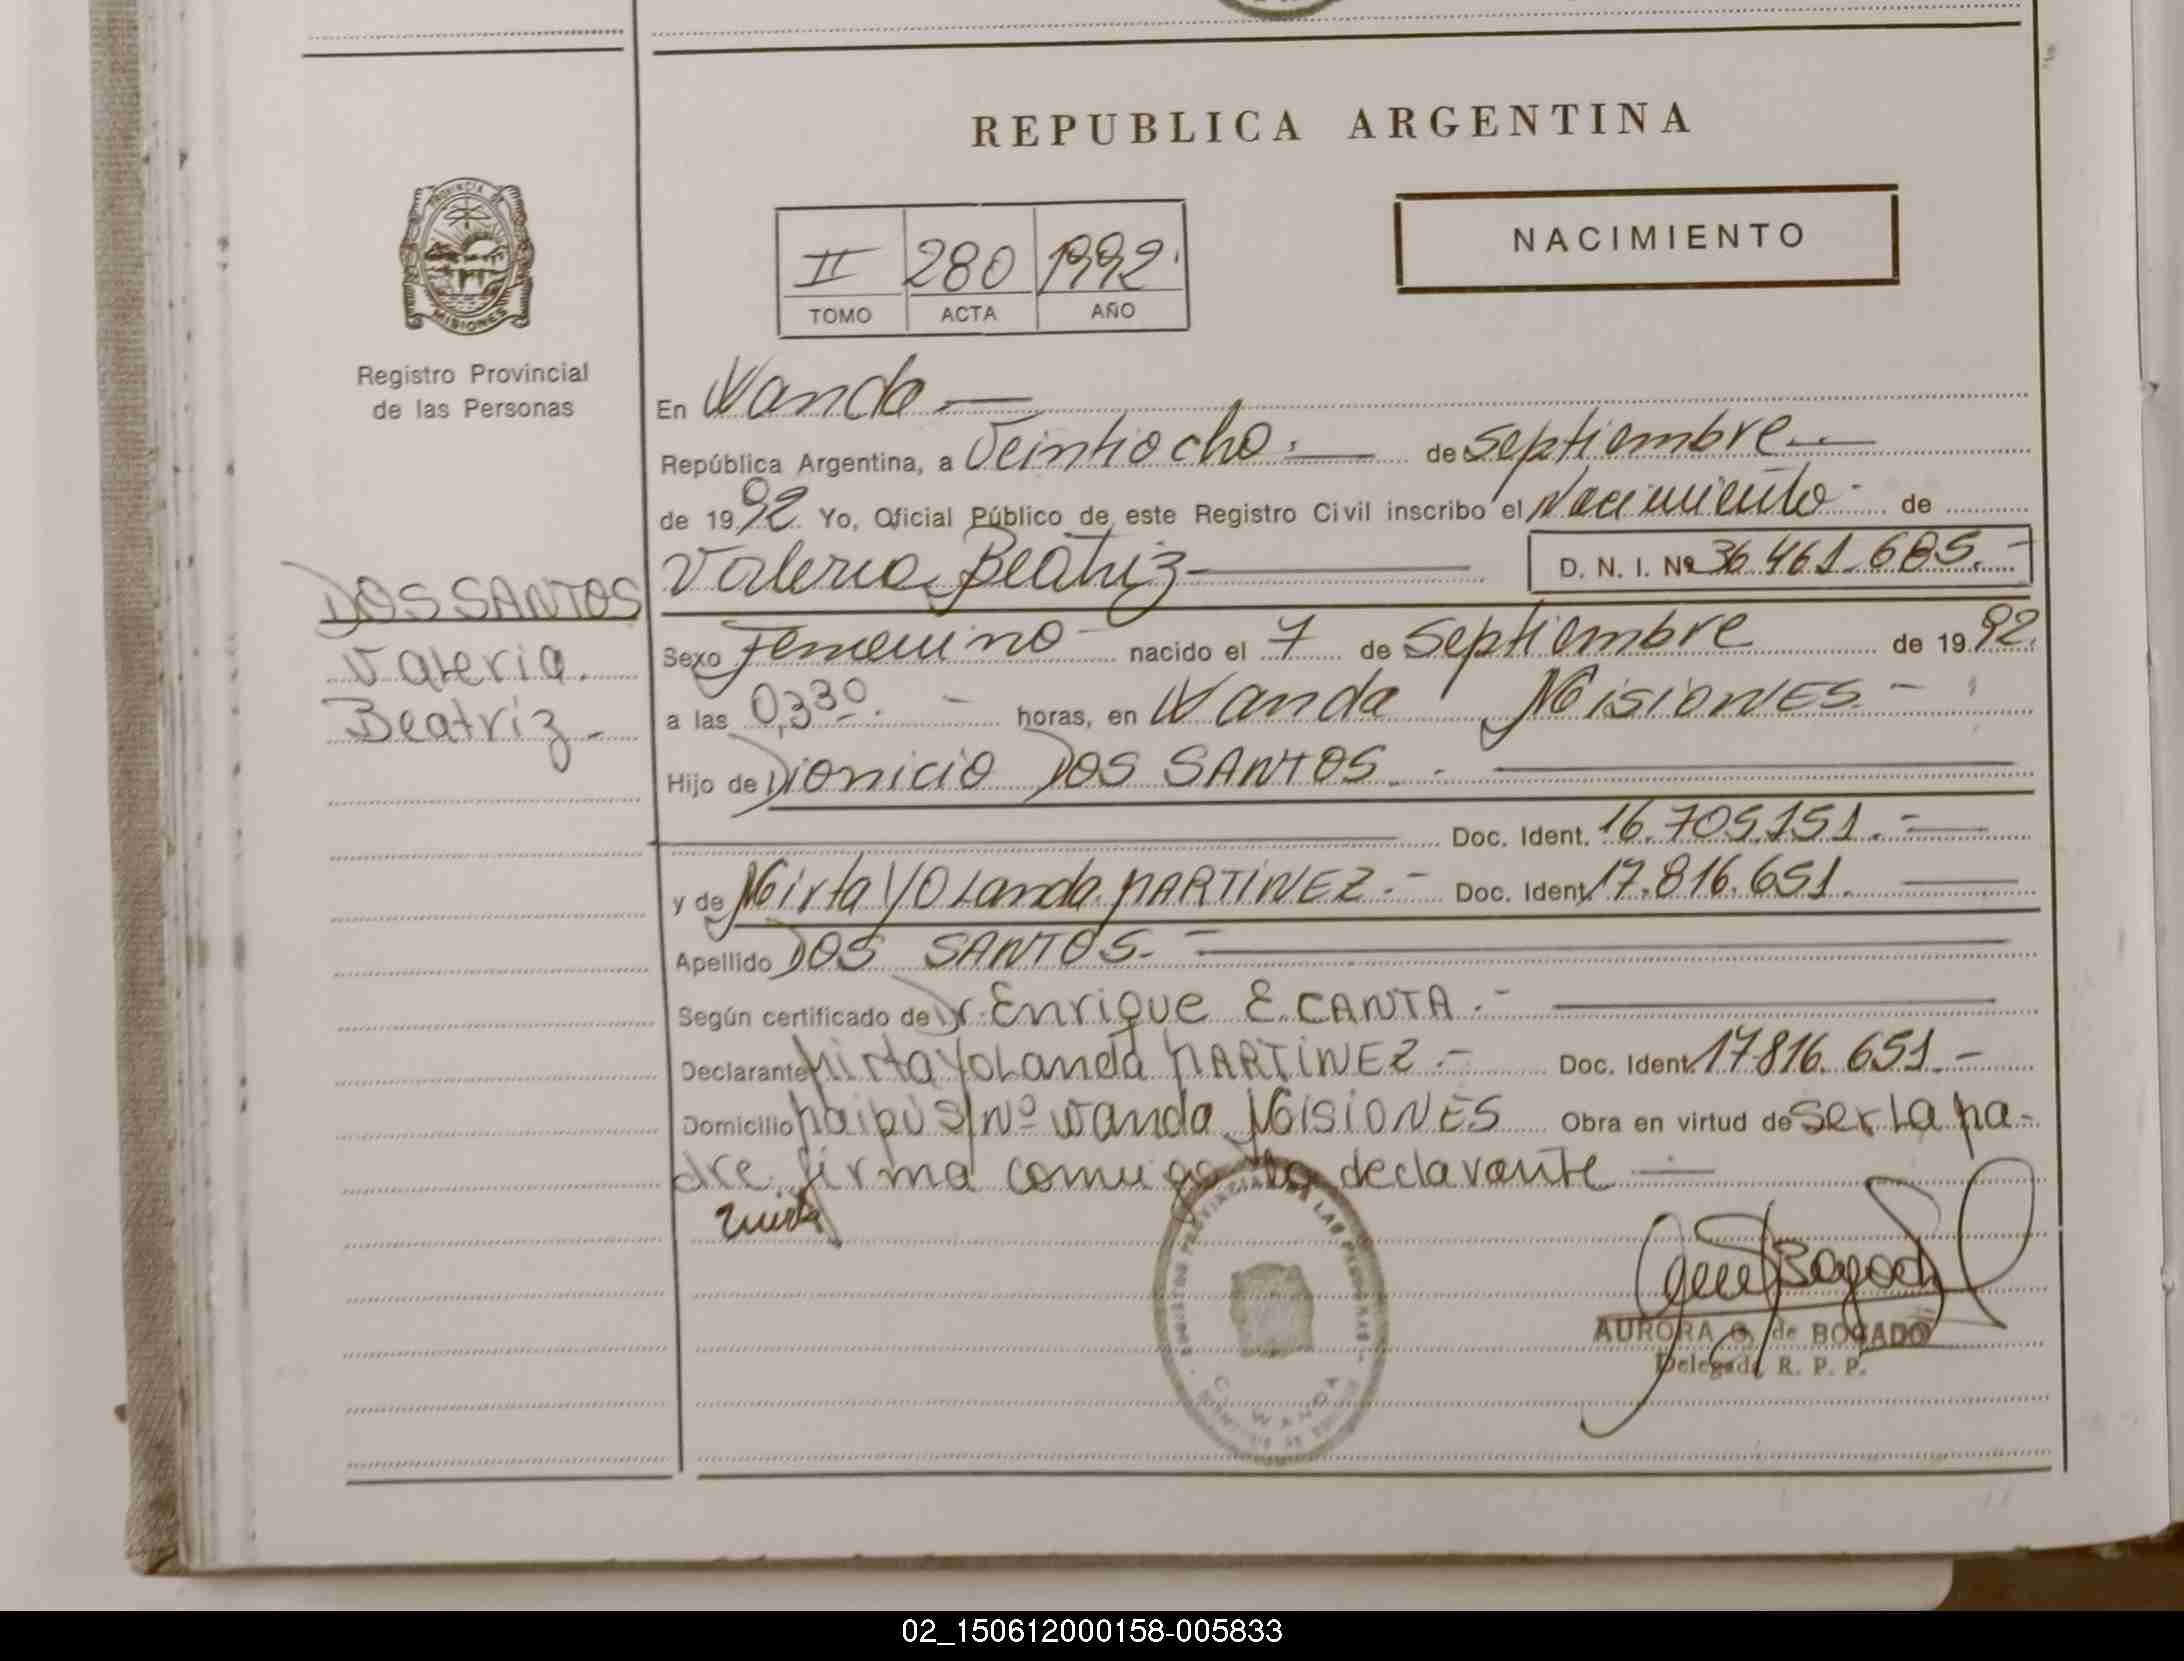 REPUBLICA ARGENTINA
NACIMIENTO
II 280 1992.
TOMO ACTA AÑO
PROVINCIA DE
MISIONES
Registro Provincial
de las Personas
En Wanda
República Argentina, a Veintiocho.- de septiembre
de 1992 Yo, Oficial Público de este Registro Civil inscribo el Nacimiento de
Valeria Beatriz D. N. I. Nº 36.461.685.-
DOS SANTOS
Valeria.
Beatriz.-
Sexo Femenino nacido el 7 de Septiembre de 1992.
a las 0,330. horas, en Wanda Misiones.-
Hijo de Dionicio DOS SANTOS.-
Doc. Ident. 16.705.151.-
y de Mirta Yolanda MARTINEZ.- Doc. Ident. 17.816.651.
Apellido DOS SANTOS.-
Según certificado de Dr. Enrique E. CANTA.-
Declarante Mirta Yolanda MARTINEZ.- Doc. Ident. 17816.651.-
Domicilio Maipú S/Nº Wanda Misiones Obra en virtud de ser la ma-
dre. firma comigo la declarante
AURORA G. de BOGADO
Delegada R. P. P.
WANDA
02_150612000158-005833